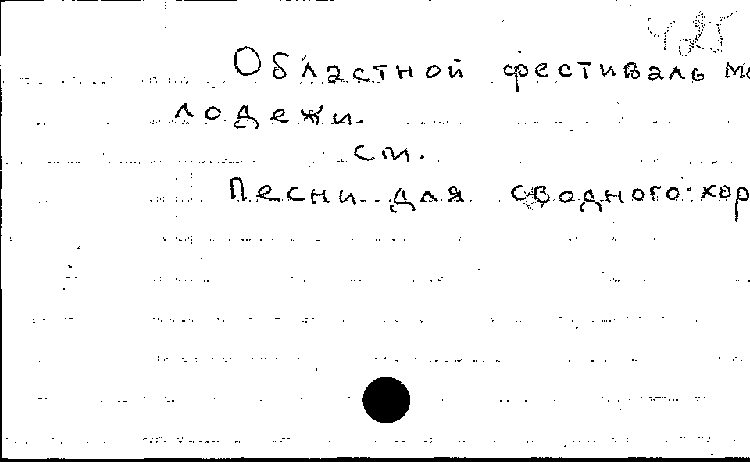 425
Областной фестиваль мо
лодежи.
см.
Песни для сводного хор